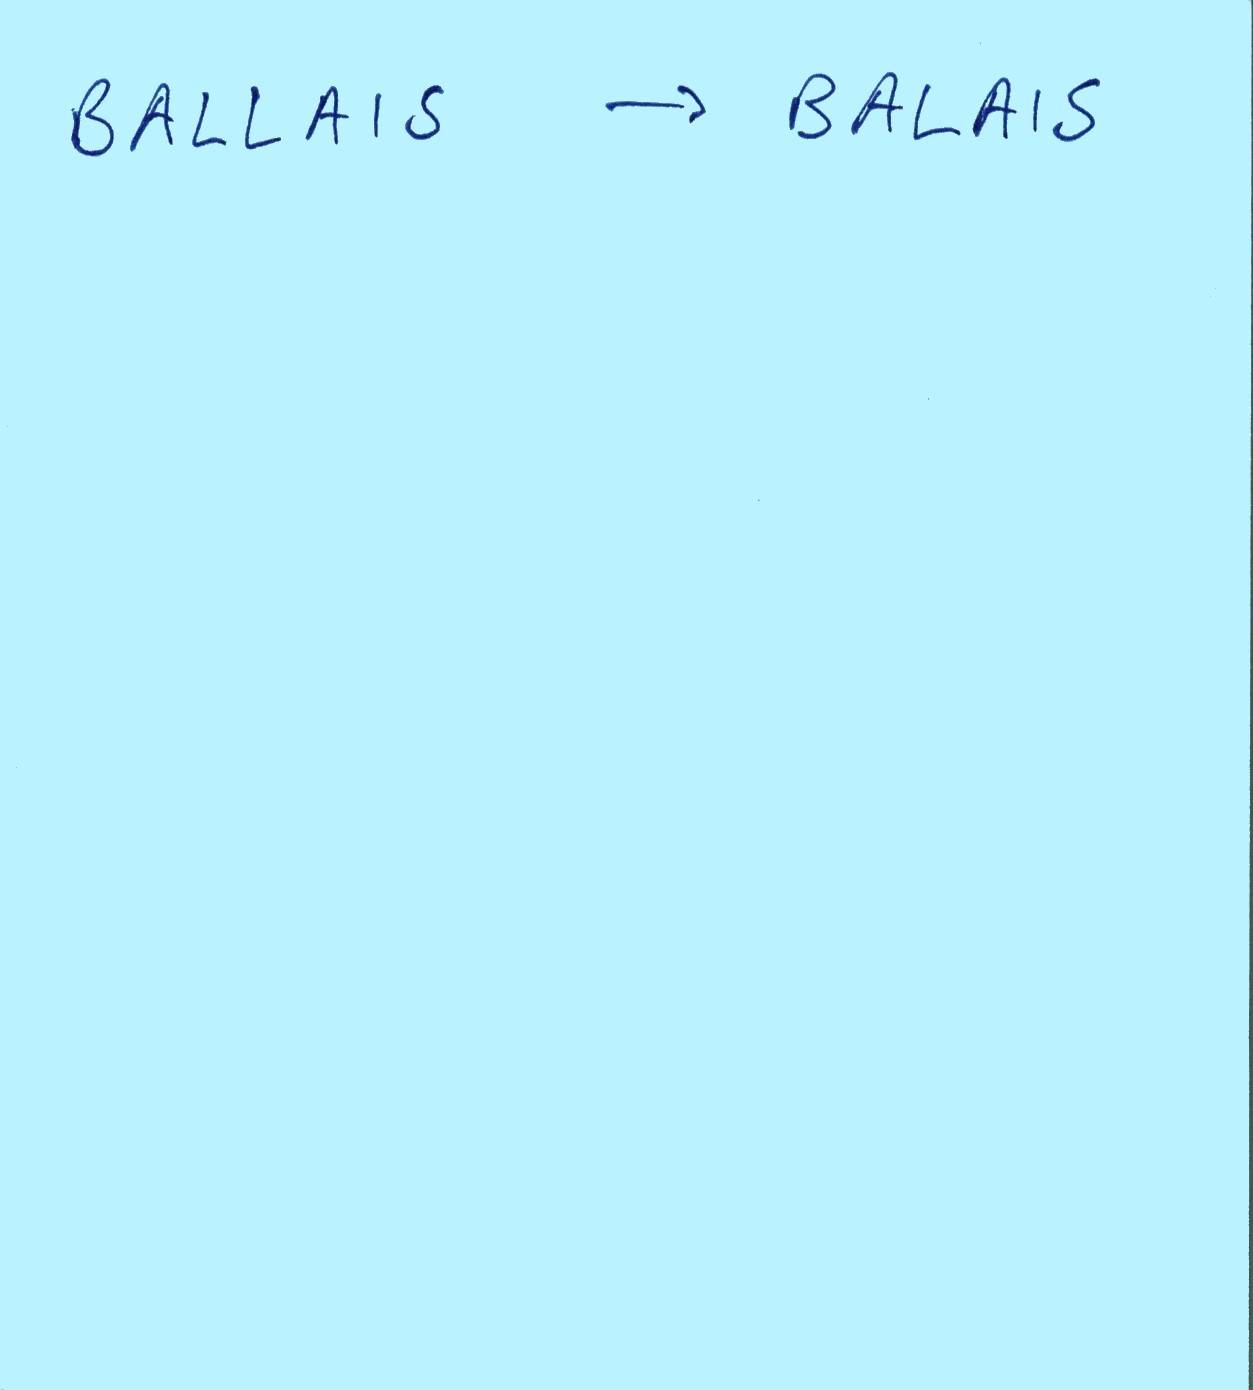 BALLAIS → BALAIS